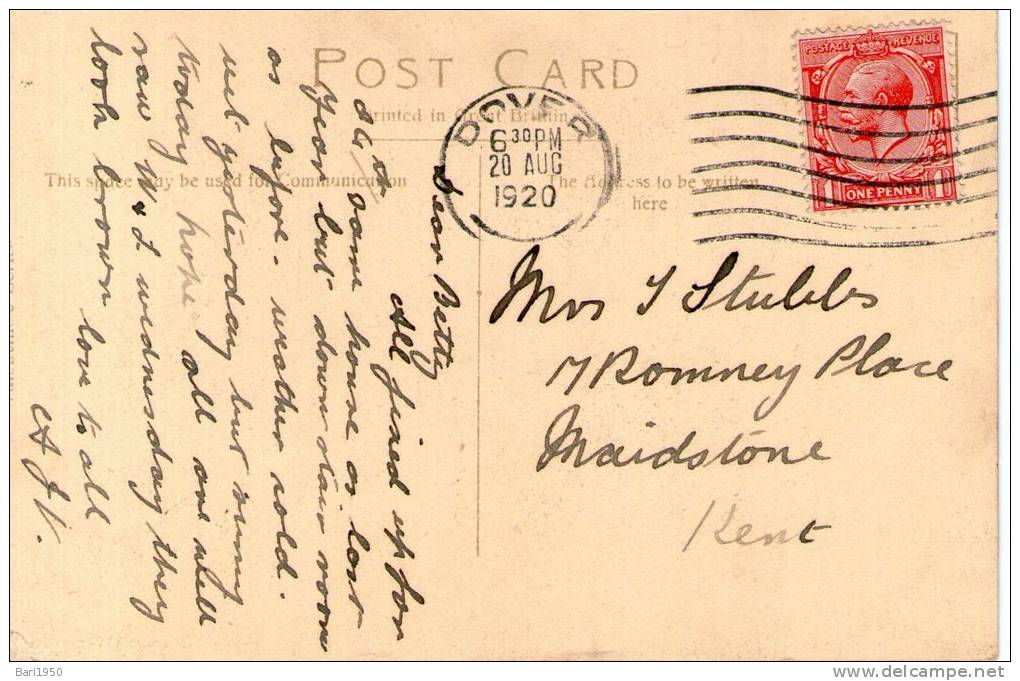 POST CARD
Printed in Great Britain
This space may be used for Communication
The Address to be written
here
DOVER
6 30 PM
20 AUG
1920
POSTAGE REVENUE
ONE PENNY
1
Dear Betty
All fixed up for
at same house as last
Year but down stair room
as before - weather cold.
wet yesterday but sunny
today hope all are well
saw M & J wednesday they
look brown love to all
Mrs J Stubbs
17 Romney Place
Maidstone
Kent
Bari1950
www.delcampe.net